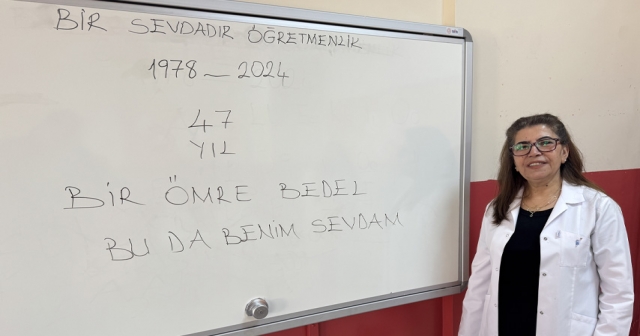 BİR SEVDADIR ÖĞRETMENLİK
1978 — 2024
47
YIL
BİR ÖMRE BEDEL
BU DA BENİM SEVDAM